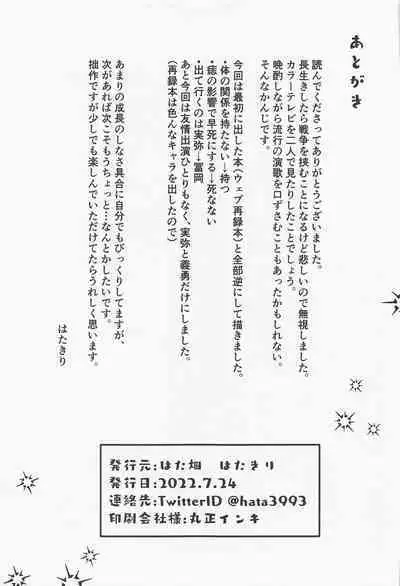 あとがき
読んでくださってありがとうございました。
長生きしたら戦争を挟むことになるけど悲しいので無視しました。
カラーテレビを二人で見たりしたことでしょう。
晩酌しながら流行の演歌を口ずさむこともあったかもしれない。
そんなかんじです。
今回は最初に出した本(ウェブ再録本)と全部逆にして描きました。
・体の関係を持たない→持つ
・痣の影響で早死にする→死なない
・出て行くのは実弥→冨岡
あと今回は友情出演ひとりもなく、実弥と義勇だけにしました。
(再録本は色んなキャラを出したので)
あまりの成長のしなさ具合に自分でもびっくりしてますが、
次があれば次こそもうちょっと…なんとかしたいです。
拙作ですが少しでも楽しんでいただけてたらうれしく思います。
はたきり
発行元:はた畑 はたきり
発行日:2022.7.24
連絡先:TwitterID @hata3993
印刷会社様:丸正インキ